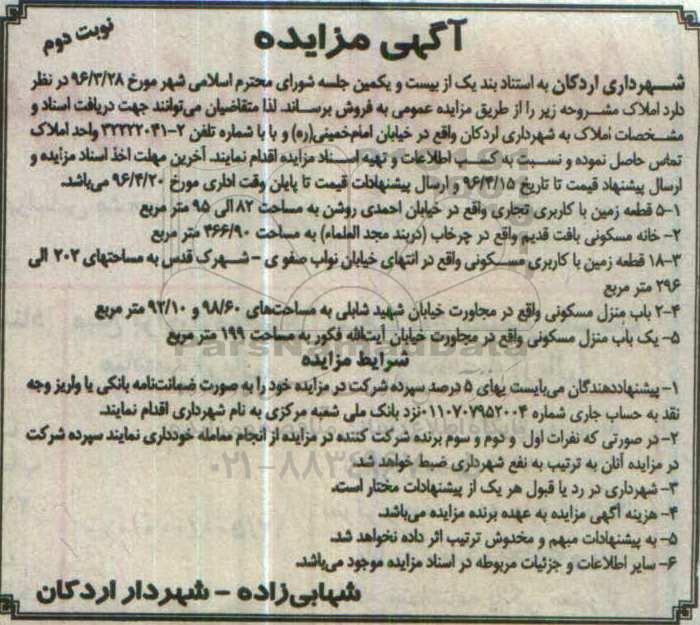 آگهی مزایده
نوبت دوم
شهرداری اردکان به استناد بند یک از بیست و یکمین جلسه شورای محترم اسلامی شهر مورخ ۹۶/۳/۲۸ در نظر
دارد املاک مشروحه زیر را از طریق مزایده عمومی به فروش برساند. لذا متقاضیان می‌توانند جهت دریافت اسناد و
مشخصات املاک به شهرداری اردکان واقع در خیابان امام‌خمینی(ره) و یا با شماره تلفن ۲-۳۲۲۲۲۰۴۱ واحد املاک
تماس حاصل نموده و نسبت به کسب اطلاعات و تهیه اسناد مزایده اقدام نمایند. آخرین مهلت اخذ اسناد مزایده و
ارسال پیشنهاد قیمت تا تاریخ ۹۶/۴/۱۵ و ارسال پیشنهادات قیمت تا پایان وقت اداری مورخ ۹۶/۴/۲۰ می‌باشد.
۱-۵ قطعه زمین با کاربری تجاری واقع در خیابان احمدی روشن به مساحت ۸۲ الی ۹۵ متر مربع
۲- خانه مسکونی بافت قدیم واقع در چرخاب (دربند مجد العلماء) به مساحت ۴۶۶/۹۰ متر مربع
۳-۱۸ قطعه زمین با کاربری مسکونی واقع در انتهای خیابان نواب صفوی - شهرک قدس به مساحتهای ۲۰۲ الی
۲۹۶ متر مربع
۴-۲ باب منزل مسکونی واقع در مجاورت خیابان شهید شابلی به مساحت‌های ۹۸/۶۰ و ۹۲/۱۰ متر مربع
۵- یک باب منزل مسکونی واقع در مجاورت خیابان آیت‌الله فکور به مساحت ۱۹۹ متر مربع
ParsNamadData
شرایط مزایده
۱- پیشنهاددهندگان می‌بایست بهای ۵ درصد سپرده شرکت در مزایده خود را به صورت ضمانت‌نامه بانکی یا واریز وجه
نقد به حساب جاری شماره ۰۱۱۰۷۰۷۹۵۲۰۰۴ نزد بانک ملی شعبه مرکزی به نام شهرداری اقدام نمایند.
۲- در صورتی که نفرات اول و دوم و سوم برنده شرکت کننده در مزایده از انجام معامله خودداری نمایند سپرده شرکت
در مزایده آنان به ترتیب به نفع شهرداری ضبط خواهد شد.
۳- شهرداری در رد یا قبول هر یک از پیشنهادات مختار است.
۴- هزینه آگهی مزایده به عهده برنده مزایده می‌باشد.
۵- به پیشنهادات مبهم و مخدوش ترتیب اثر داده نخواهد شد.
۶- سایر اطلاعات و جزئیات مربوطه در اسناد مزایده موجود می‌باشد.
شهابی‌زاده - شهردار اردکان